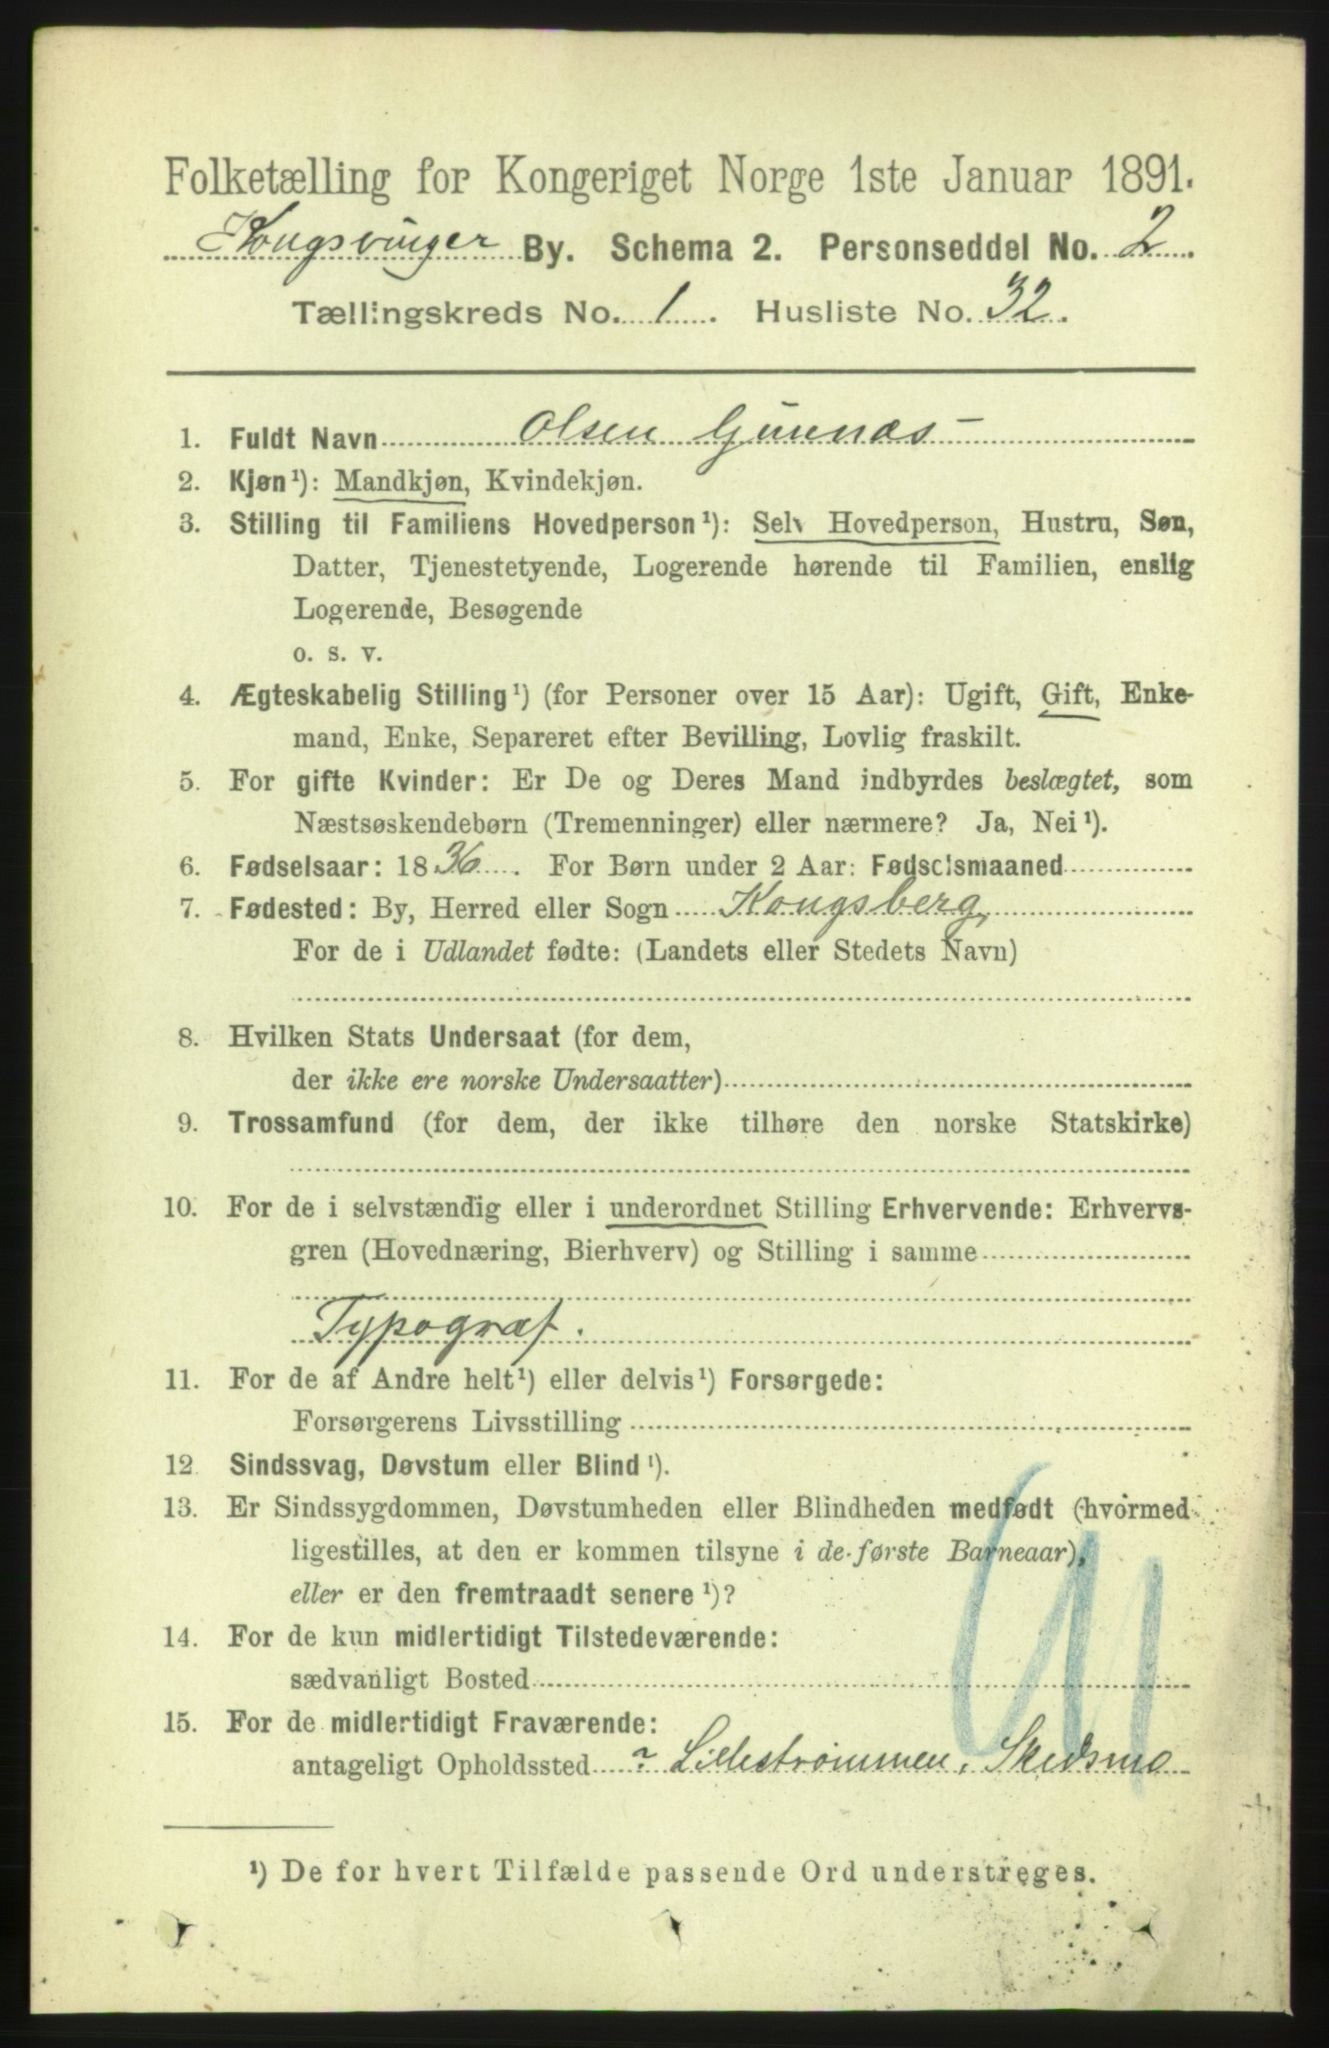 Folketælling for Kongeriget Norge 1ste Januar 1891.
Kongsvinger By. Schema 2. Personseddel No. 2.
Tællingskreds No. 1. Husliste No. 32.
1. Fuldt Navn Olsen Gunnæs
2. Kjøn¹): Mandkjøn, Kvindekjøn.
3. Stilling til Familiens Hovedperson¹): Selv Hovedperson, Hustru, Søn,
Datter, Tjenestetyende, Logerende hørende til Familien, enslig
Logerende, Besøgende
o. s. v.
4. Ægteskabelig Stilling¹) (for Personer over 15 Aar): Ugift, Gift, Enke-
mand, Enke, Separeret efter Bevilling, Lovlig fraskilt.
5. For gifte Kvinder: Er De og Deres Mand indbyrdes beslægtet, som
Næstsøskendebørn (Tremenninger) eller nærmere? Ja, Nei¹).
6. Fødselsaar: 1836. For Børn under 2 Aar: Fødselsmaaned
7. Fødested: By, Herred eller Sogn Kongsberg,
For de i Udlandet fødte: (Landets eller Stedets Navn)
8. Hvilken Stats Undersaat (for dem,
der ikke ere norske Undersaatter)
9. Trossamfund (for dem, der ikke tilhøre den norske Statskirke)
10. For de i selvstændig eller i underordnet Stilling Erhvervende: Erhvervs-
gren (Hovednæring, Bierhverv) og Stilling i samme
Typograf.
11. For de af Andre helt¹) eller delvis¹) Forsørgede:
Forsørgerens Livsstilling
12. Sindssvag, Døvstum eller Blind¹).
13. Er Sindssygdommen, Døvstumheden eller Blindheden medfødt (hvormed
ligestilles, at den er kommen tilsyne i de første Barneaar),
eller er den fremtraadt senere¹)?
14. For de kun midlertidigt Tilstedeværende:
sædvanligt Bosted
15. For de midlertidigt Fraværende:
antageligt Opholdssted ? Lillestrømmen, Skedsmo
¹) De for hvert Tilfælde passende Ord understreges.